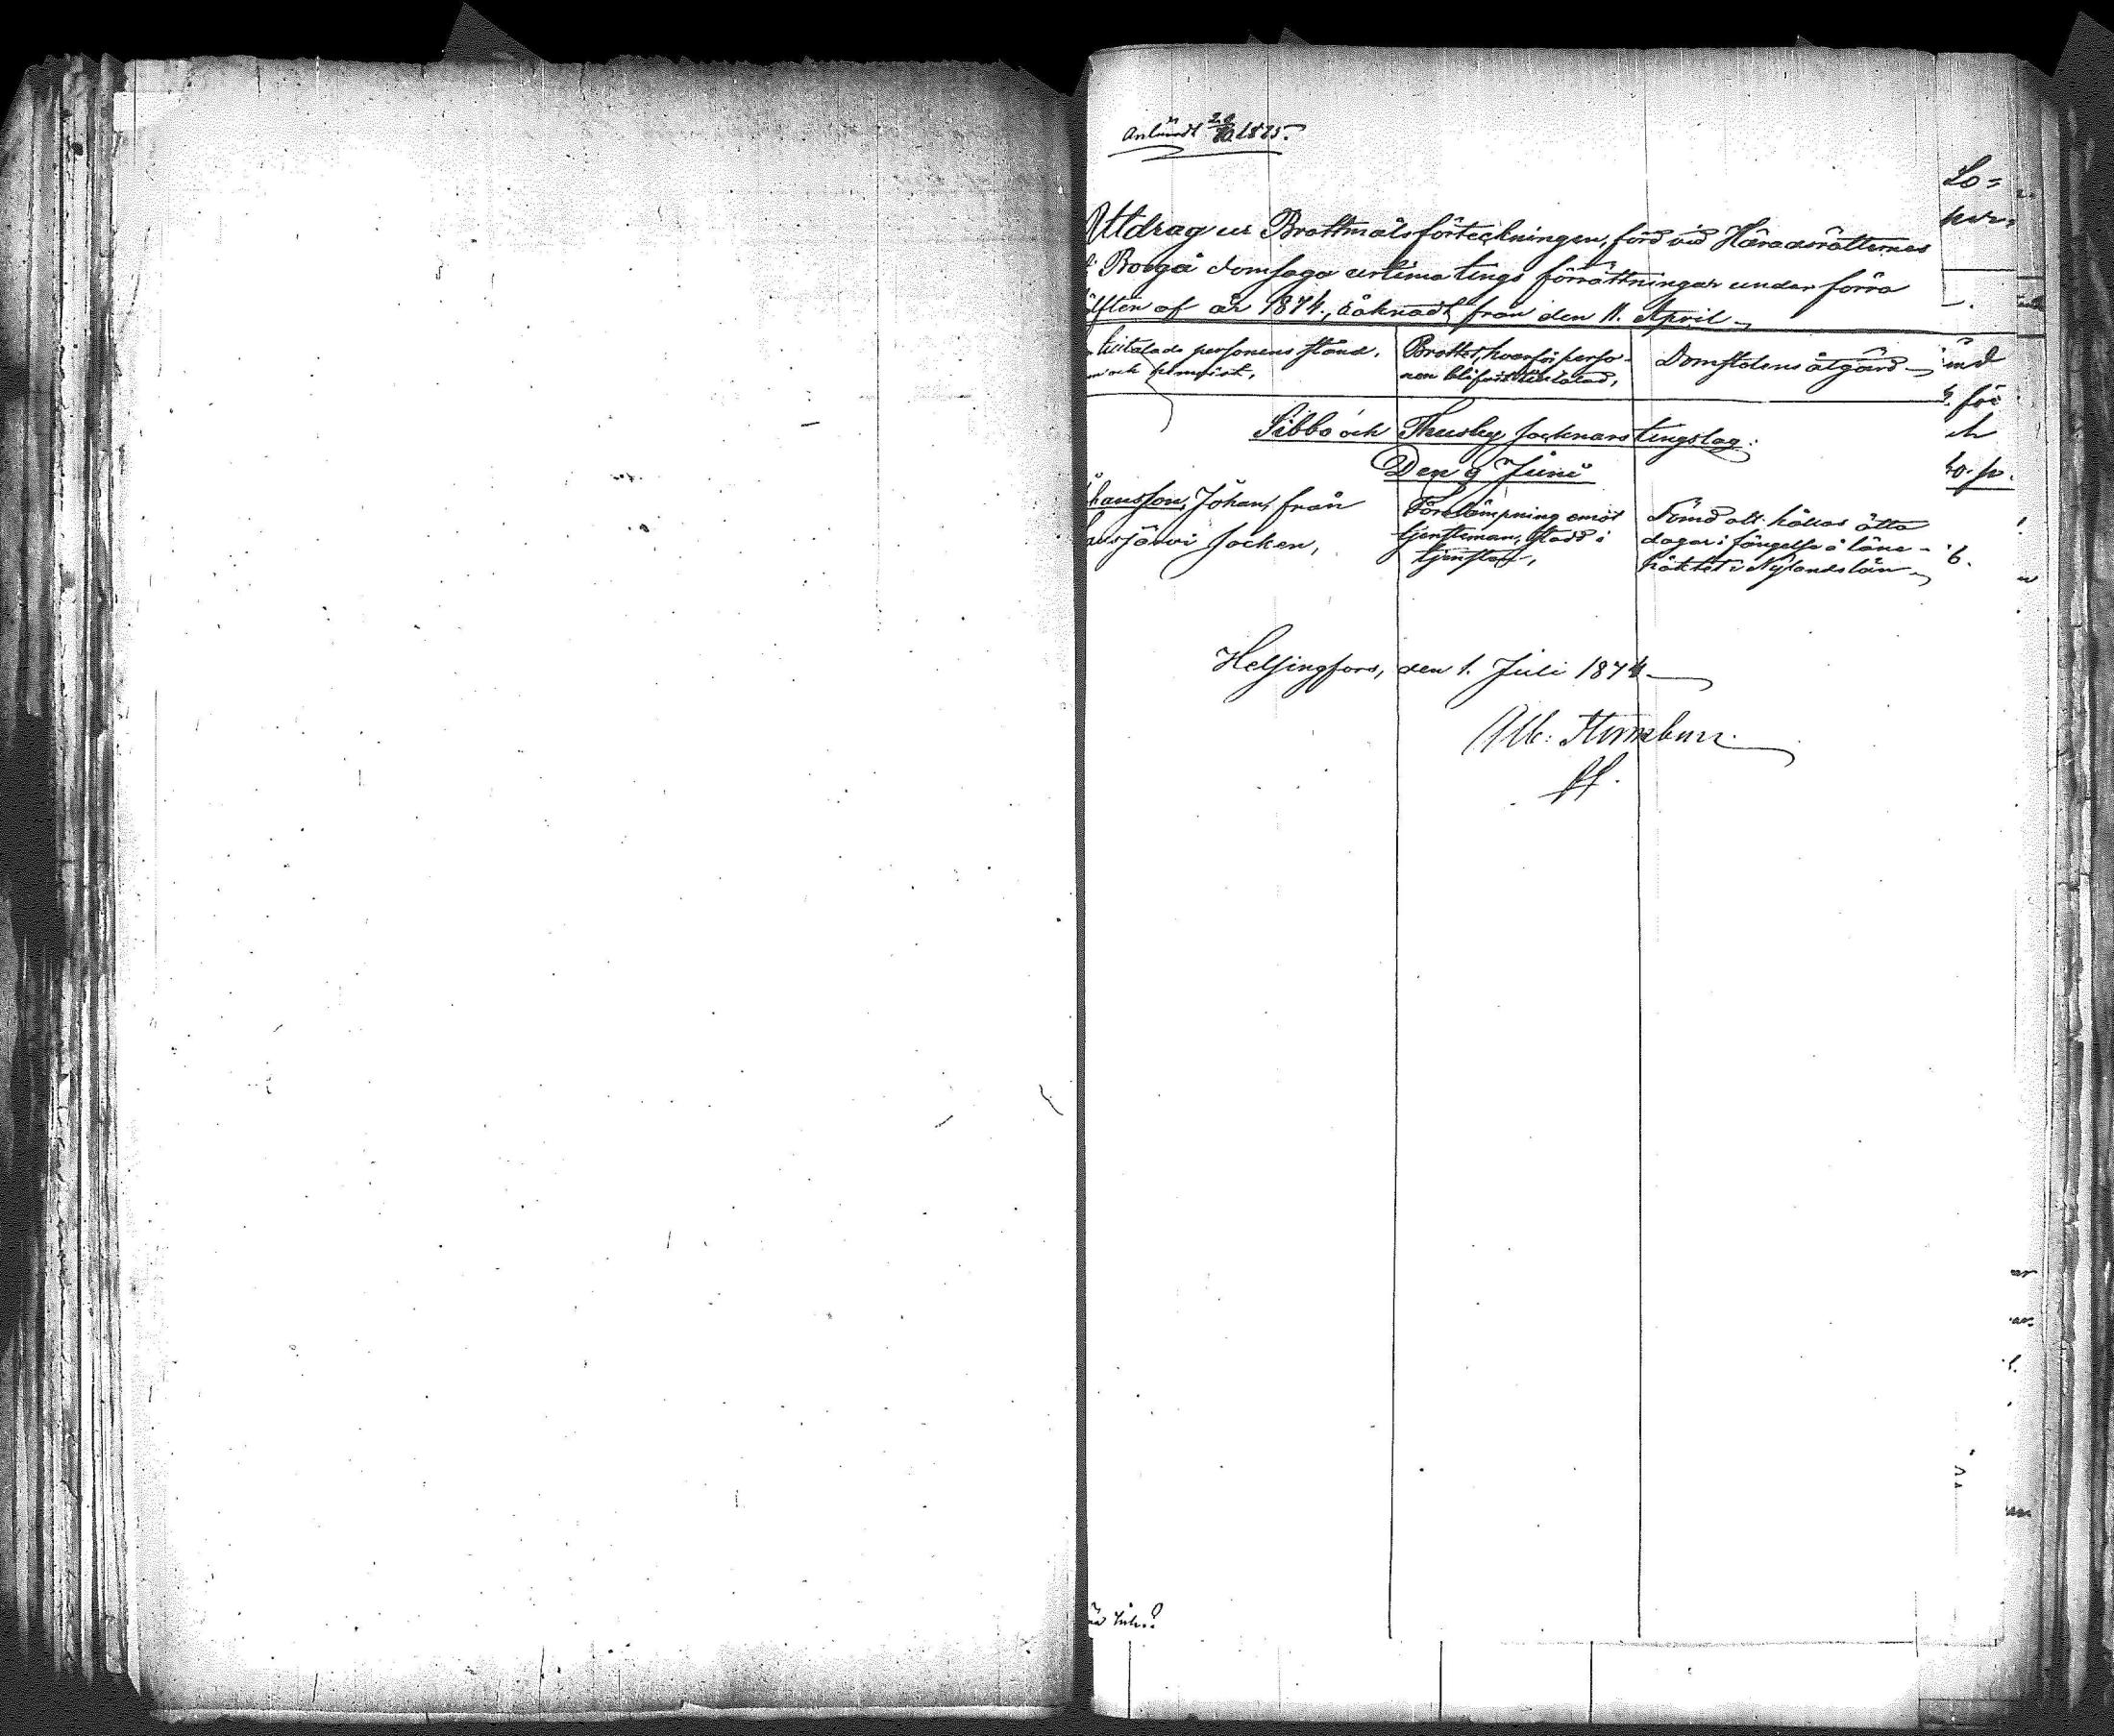 Utdrag ur Brottmålsförteckningen, förd vid Häradsrätternes
i Borgå domsaga urtima tings förrättningar under förra
älften af år 1874, räknadt från den 11. April
tilltalade personens stånd,
och hemvist,
Brottet, hvarför perso-
nen blifvit tilltalad,
Domstolens åtgärd
Sibbo och Thusby socknars tingslag:
Den 9 Juni
hansson, Johan, från
ausjärvi socken,
Förolämpning emot
tjensteman, stadd i
tjensten,
Dömd att hållas åtta
dagar i fängelse å läne-
häktet i Nylands län
Helsingfors, den 1. Juli 1874